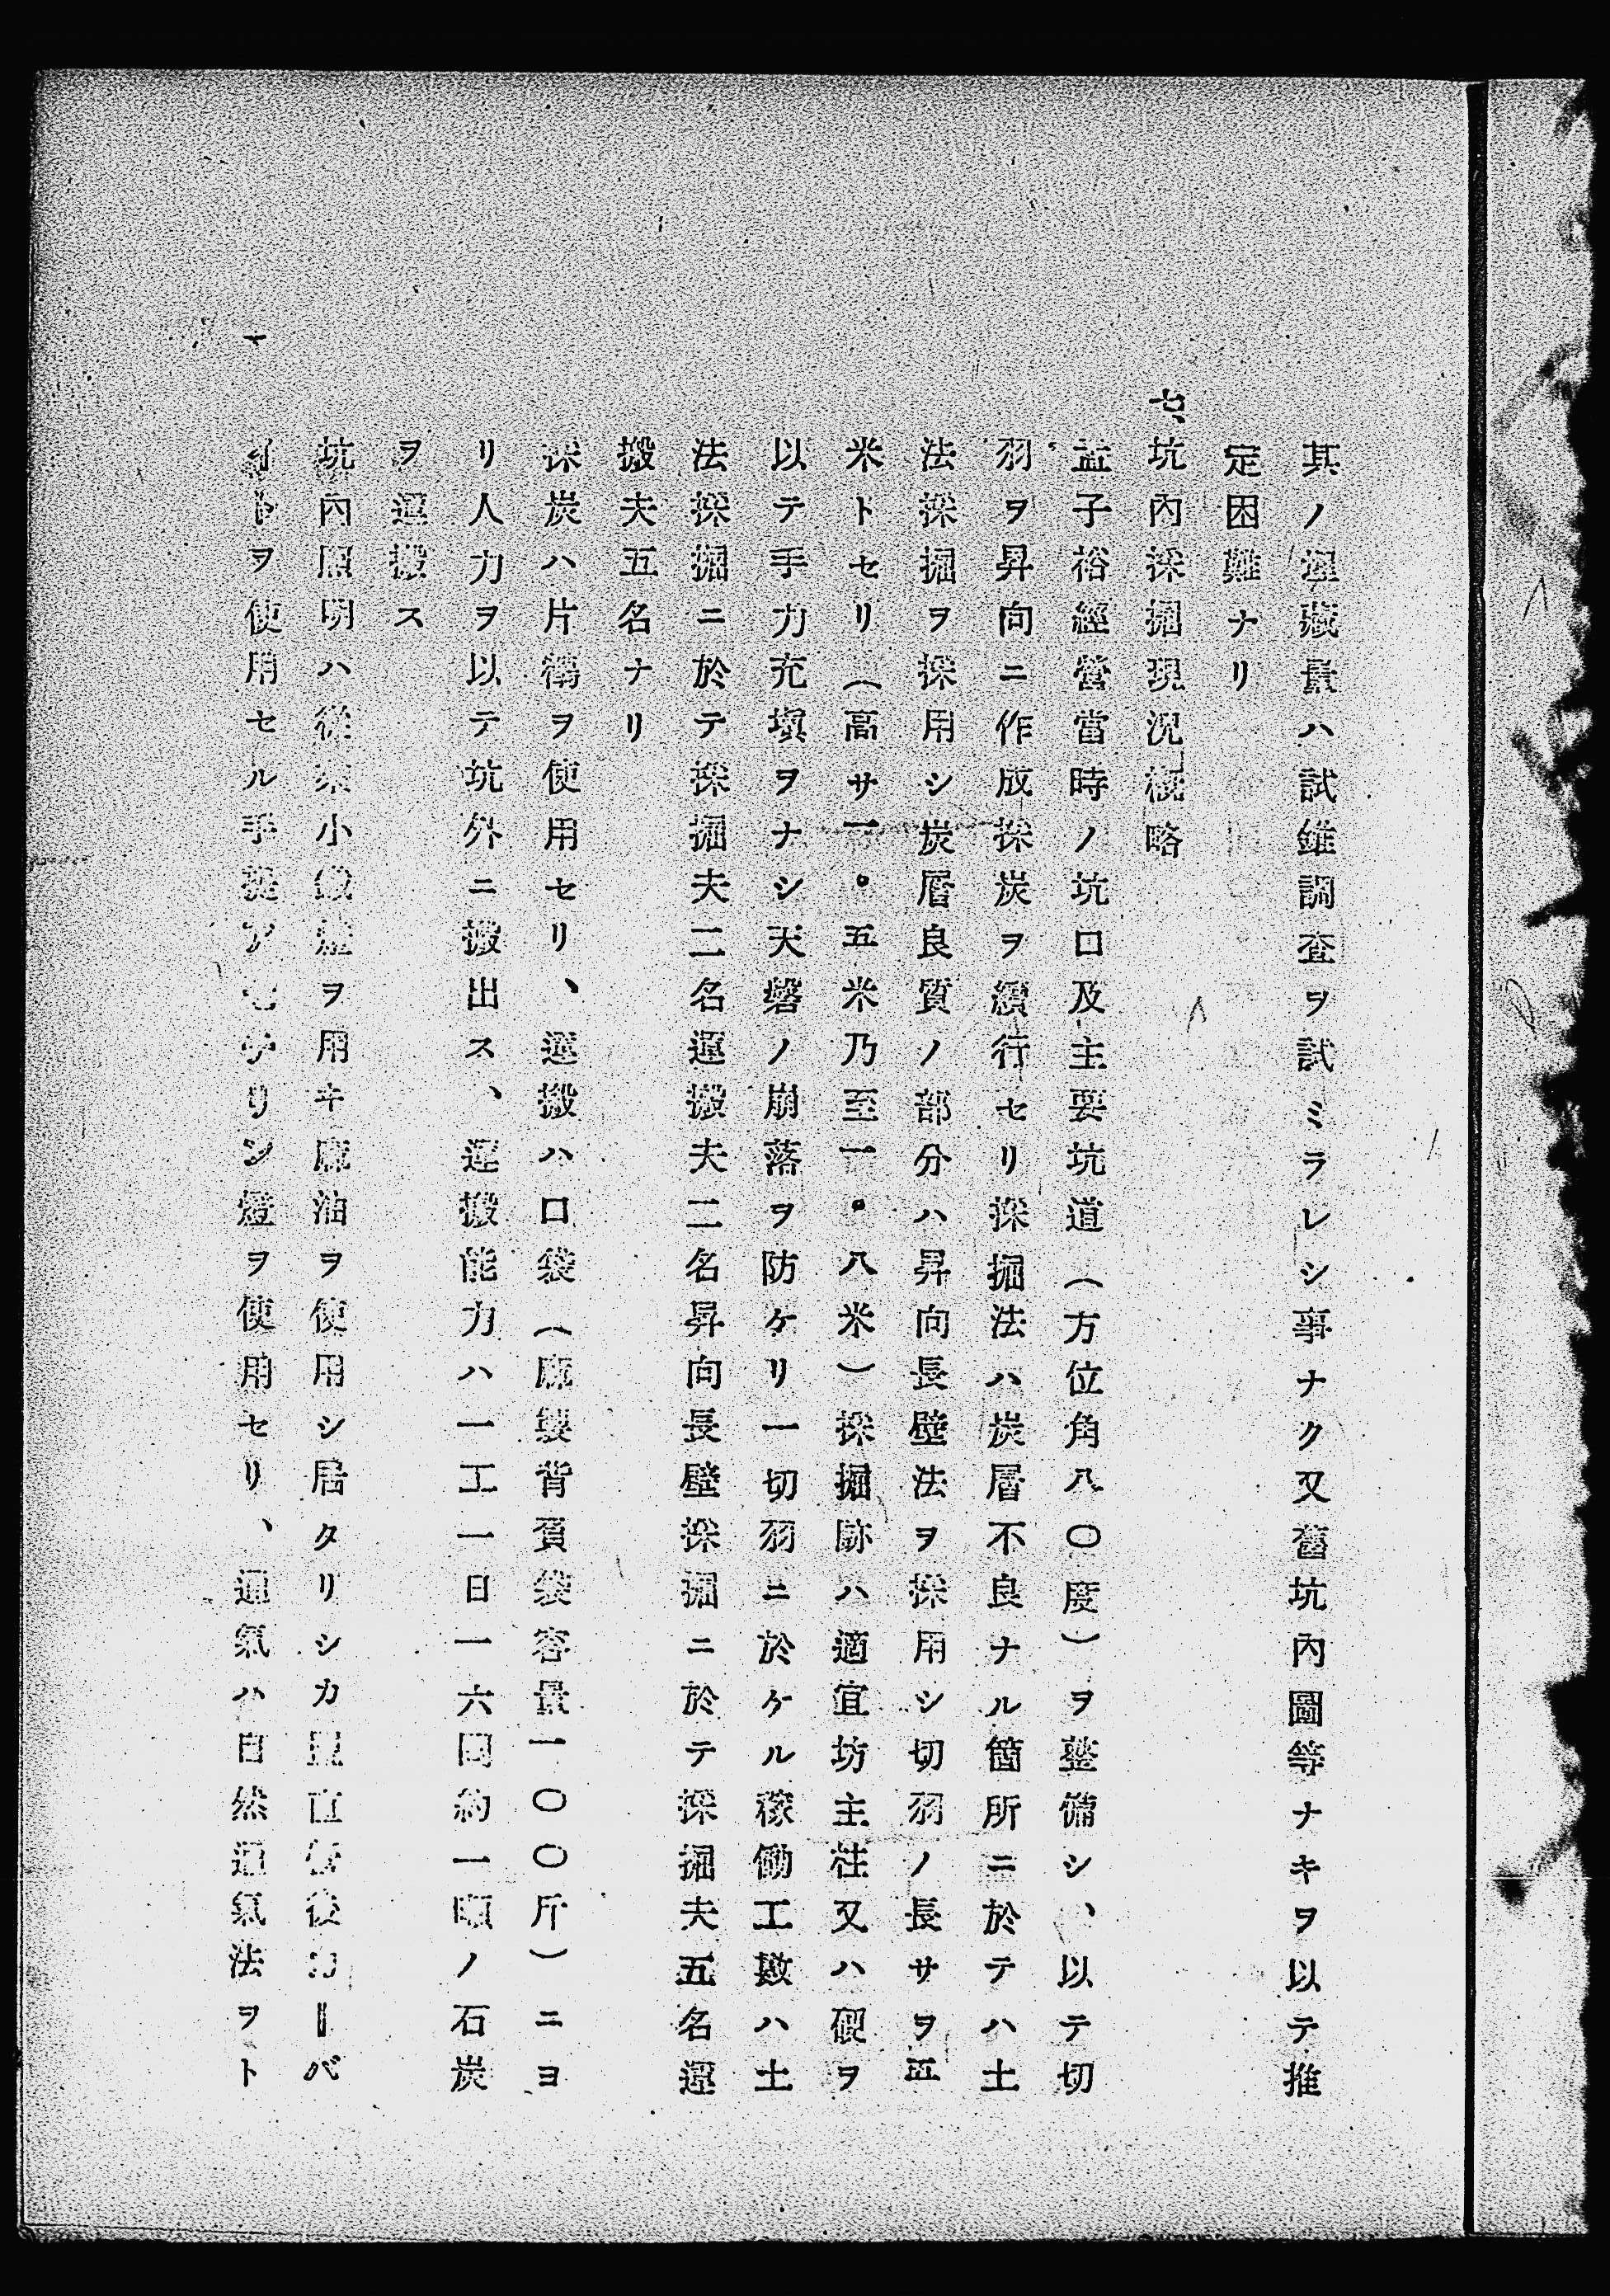 其ノ埋藏量ハ試錐調査ヲ試ミラレシ事ナク又舊坑內圖等ナキヲ以テ推
定困難ナリ
七、坑內採掘現況槪略
孟子裕經營當時ノ坑口及主要坑道（方位角八〇度）ヲ整備シ、以テ切
羽ヲ昇向ニ作成採炭ヲ續行セリ採掘法ハ炭層不良ナル箇所ニ於テハ土
法採掘ヲ採用シ炭層良質ノ部分ハ昇向長壁法ヲ採用シ切羽ノ長サヲ
米トセリ（高サ一。五米乃至一。八米）採掘跡ハ適宜坊主柱又ハ硬ヲ
以テ手力充塡ヲナシ天磐ノ崩落ヲ防ケリ一切羽ニ於ケル稼働工數ハ土
法採掘ニ於テ採掘夫二名運搬夫二名昇向長壁採掘ニ於テ採掘夫五名運
搬夫五名ナリ
採炭ハ片鶴ヲ使用セリ、運搬ハ口袋（麻製背負袋容量一〇〇斤）ニヨ
リ人力ヲ以テ坑外ニ搬出ス、運搬能力ハ一工一日一六回約一噸ノ石炭
ヲ運搬ス
坑內照明ハ從來小鐵燈ヲ用ヰ麻油ヲ使用シ居タリシカ直後カーバ
イトヲ使用セル手提アセチリン燈ヲ使用セリ、通氣ハ自然通氣法ヲト